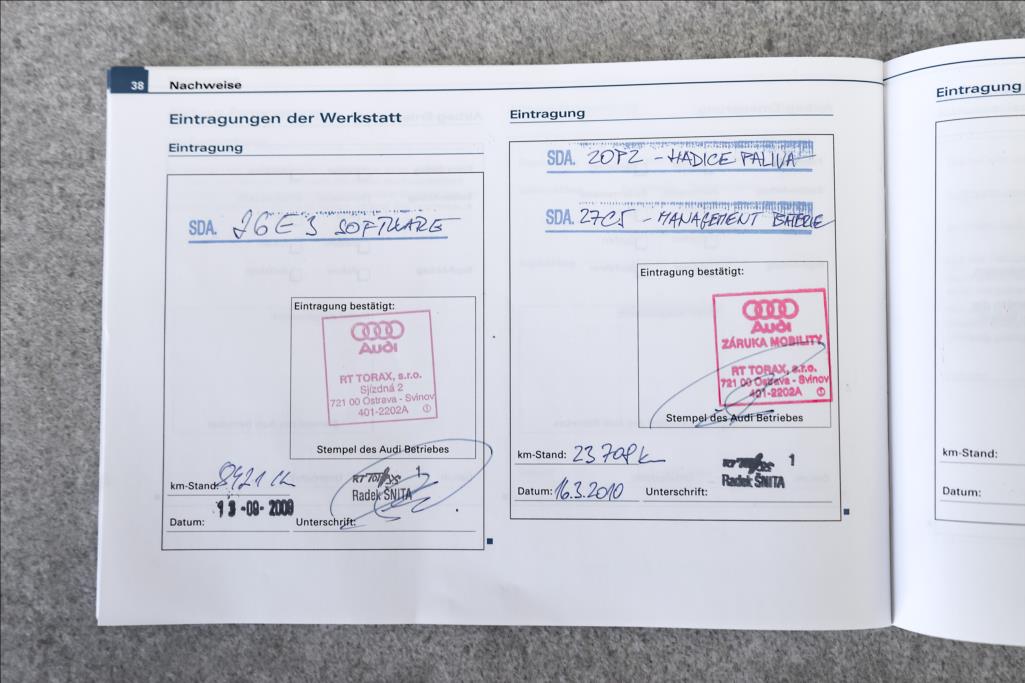 38 Nachweise
Eintragungen der Werkstatt
Eintragung
SDA. 26E3 SOFTWARE
Eintragung bestätigt:
Audi
RT TORAX, s.r.o.
Sjízdná 2
721 00 Ostrava - Svinov
401-2202A 1
Stempel des Audi Betriebes
km-Stand: 8421 k
RT TORAX 1
Radek ŠNITA
Datum: 13-09-2009
Unterschrift:
Eintragung
SDA. 20P2 - HADICE PALIVA
SDA. 27C5 - MANAGEMENT BATERIE
Eintragung bestätigt:
Audi
ZÁRUKA MOBILITY
RT TORAX, s.r.o.
721 00 Ostrava - Svinov
401-2202A 1
Stempel des Audi Betriebes
km-Stand: 23708 k
1
Radek ŠNITA
Datum: 16.3.2010
Unterschrift:
Eintragung
km-Stand:
Datum: